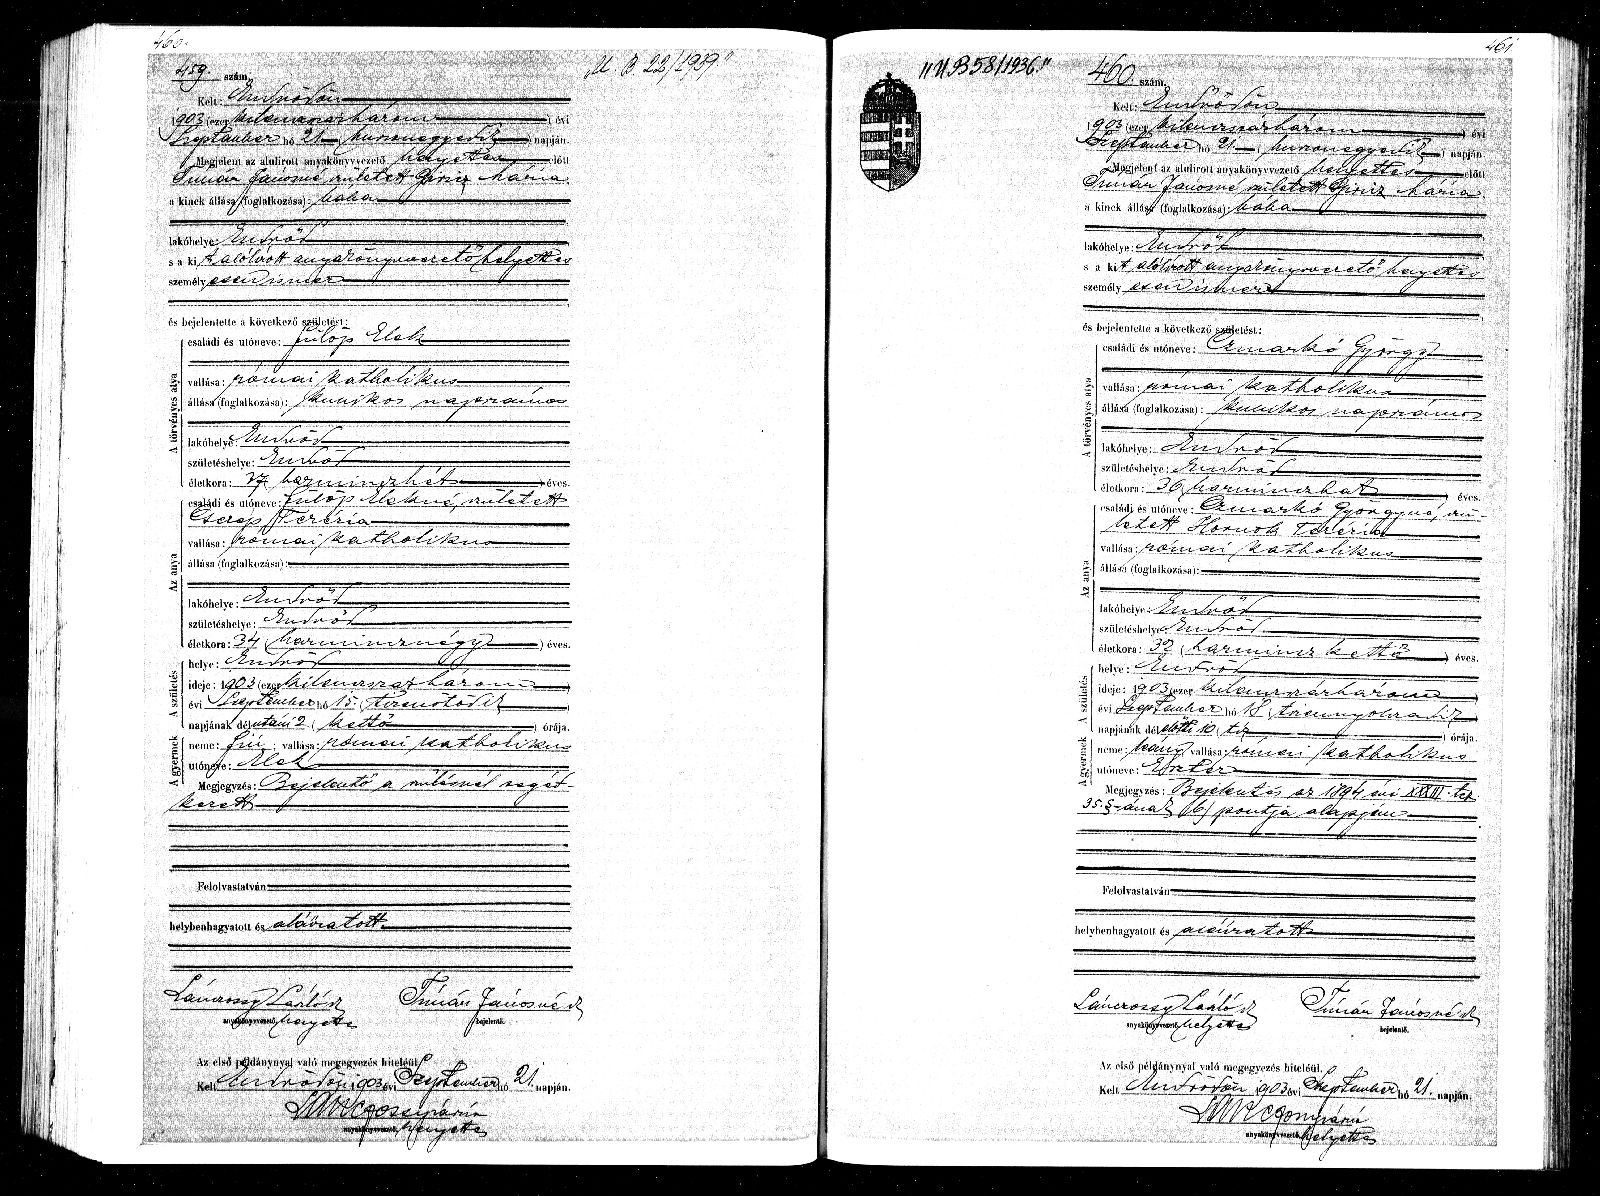 460.
459. szám.
"U. B. 22/1939"
Kelt: Endrődön
1903 (ezer kilenczszázhárom) évi
Szeptember hó 21 (huszonegyedik) napján.
Megjelent az alulirott anyakönyvvezető helyettes előtt
Timár Jánosné született Giricz Mária
a kinek állása (foglalkozása): bába
lakóhelye: Endrőd
s a kit alólirott anyakönyvvezető helyettes
személyesen ismer
és bejelentette a következő születést:
A törvényes atya
családi és utóneve: Fülöp Elek
vallása: római katholikus
állása (foglalkozása): kubikos napszámos
lakóhelye: Endrőd
születéshelye: Endrőd
életkora: 37 (harminczhét) éves.
Az anya
családi és utóneve: Fülöp Elekné, született
Cserep Terézia
vallása: római katholikus
állása (foglalkozása):
lakóhelye: Endrőd
születéshelye: Endrőd
életkora: 34 (harmincznégy) éves.
A születés
helye: Endrőd
ideje: 1903 (ezer kilenczszázhárom)
évi Szeptember hó 15. (tizenötödik)
napjának délutáni 2 (kettő) órája.
A gyermek
neme: fiú; vallása: római katholikus
utóneve: Elek
Megjegyzés: Bejelentő a szülésnél segéd-
kezett
Felolvastatván
helybenhagyatott és aláiratott.
László Timár Jánosné
anyakönyvvezető helyettes bejelentő.
Az első példánynyal való megegyezés hiteléül.
Kelt Endrődön 1903 évi Szeptember hó 21. napján.
anyakönyvvezető helyettes
461
"U. B 58/1936."
460 szám.
Kelt: Endrődön
1903 (ezer kilenczszázhárom) évi
Szeptember hó 21 (huszonegyedik) napján
Megjelent az alulirott anyakönyvvezető helyettes előtt
Timár Jánosné, született Giricz Mária
a kinek állása (foglalkozása): bába
lakóhelye: Endrőd
s a kit alólirott anyakönyvvezető helyettes
személyesen ismer
és bejelentette a következő születést:
A törvényes atya
családi és utóneve: Czmarkó György
vallása: római katholikus
állása (foglalkozása): kubikos napszámos
lakóhelye: Endrőd
születéshelye: Endrőd
életkora: 36 (harminczhat) éves.
Az anya
családi és utóneve: Czmarkó Györgyné, szü-
letett Hornok Terézia
vallása: római katholikus
állása (foglalkozása):
lakóhelye: Endrőd
születéshelye: Endrőd
életkora: 32 (harminczkettő) éves.
A születés
helye: Endrőd
ideje: 1903 (ezer kilenczszázhárom)
évi Szeptember hó 18 (tizennyolczadik)
napjának délelőtti 10 (tiz) órája.
A gyermek
neme: leány vallása: római katholikus
utóneve: Eszter
Megjegyzés: Bejelentés az 1894 évi XXXIII. tcz
35. §-ának (b) pontja alapján
Felolvastatván
helybenhagyatott és aláiratott
László Timár Jánosné
anyakönyvvezető helyettes bejelentő.
Az első példánynyal való megegyezés hiteléül.
Kelt Endrődön 1903 évi Szeptember hó 21. napján.
anyakönyvvezető helyettes